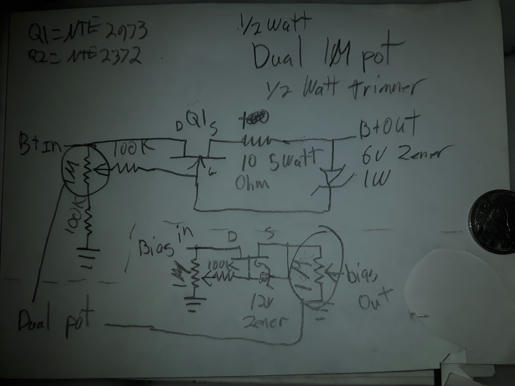 Q1=NTE2973
Q2=NTE2372
1/2 Watt
Dual 1M pot
1/2 Watt trimmer
B+ In
100K
D
Q1
S
G
10 5Watt
Ohm
B+Out
6V Zener
1W
1M
100K
Bias in
D
S
G
1M
100K
12V
Zener
bias
Out
Dual pot